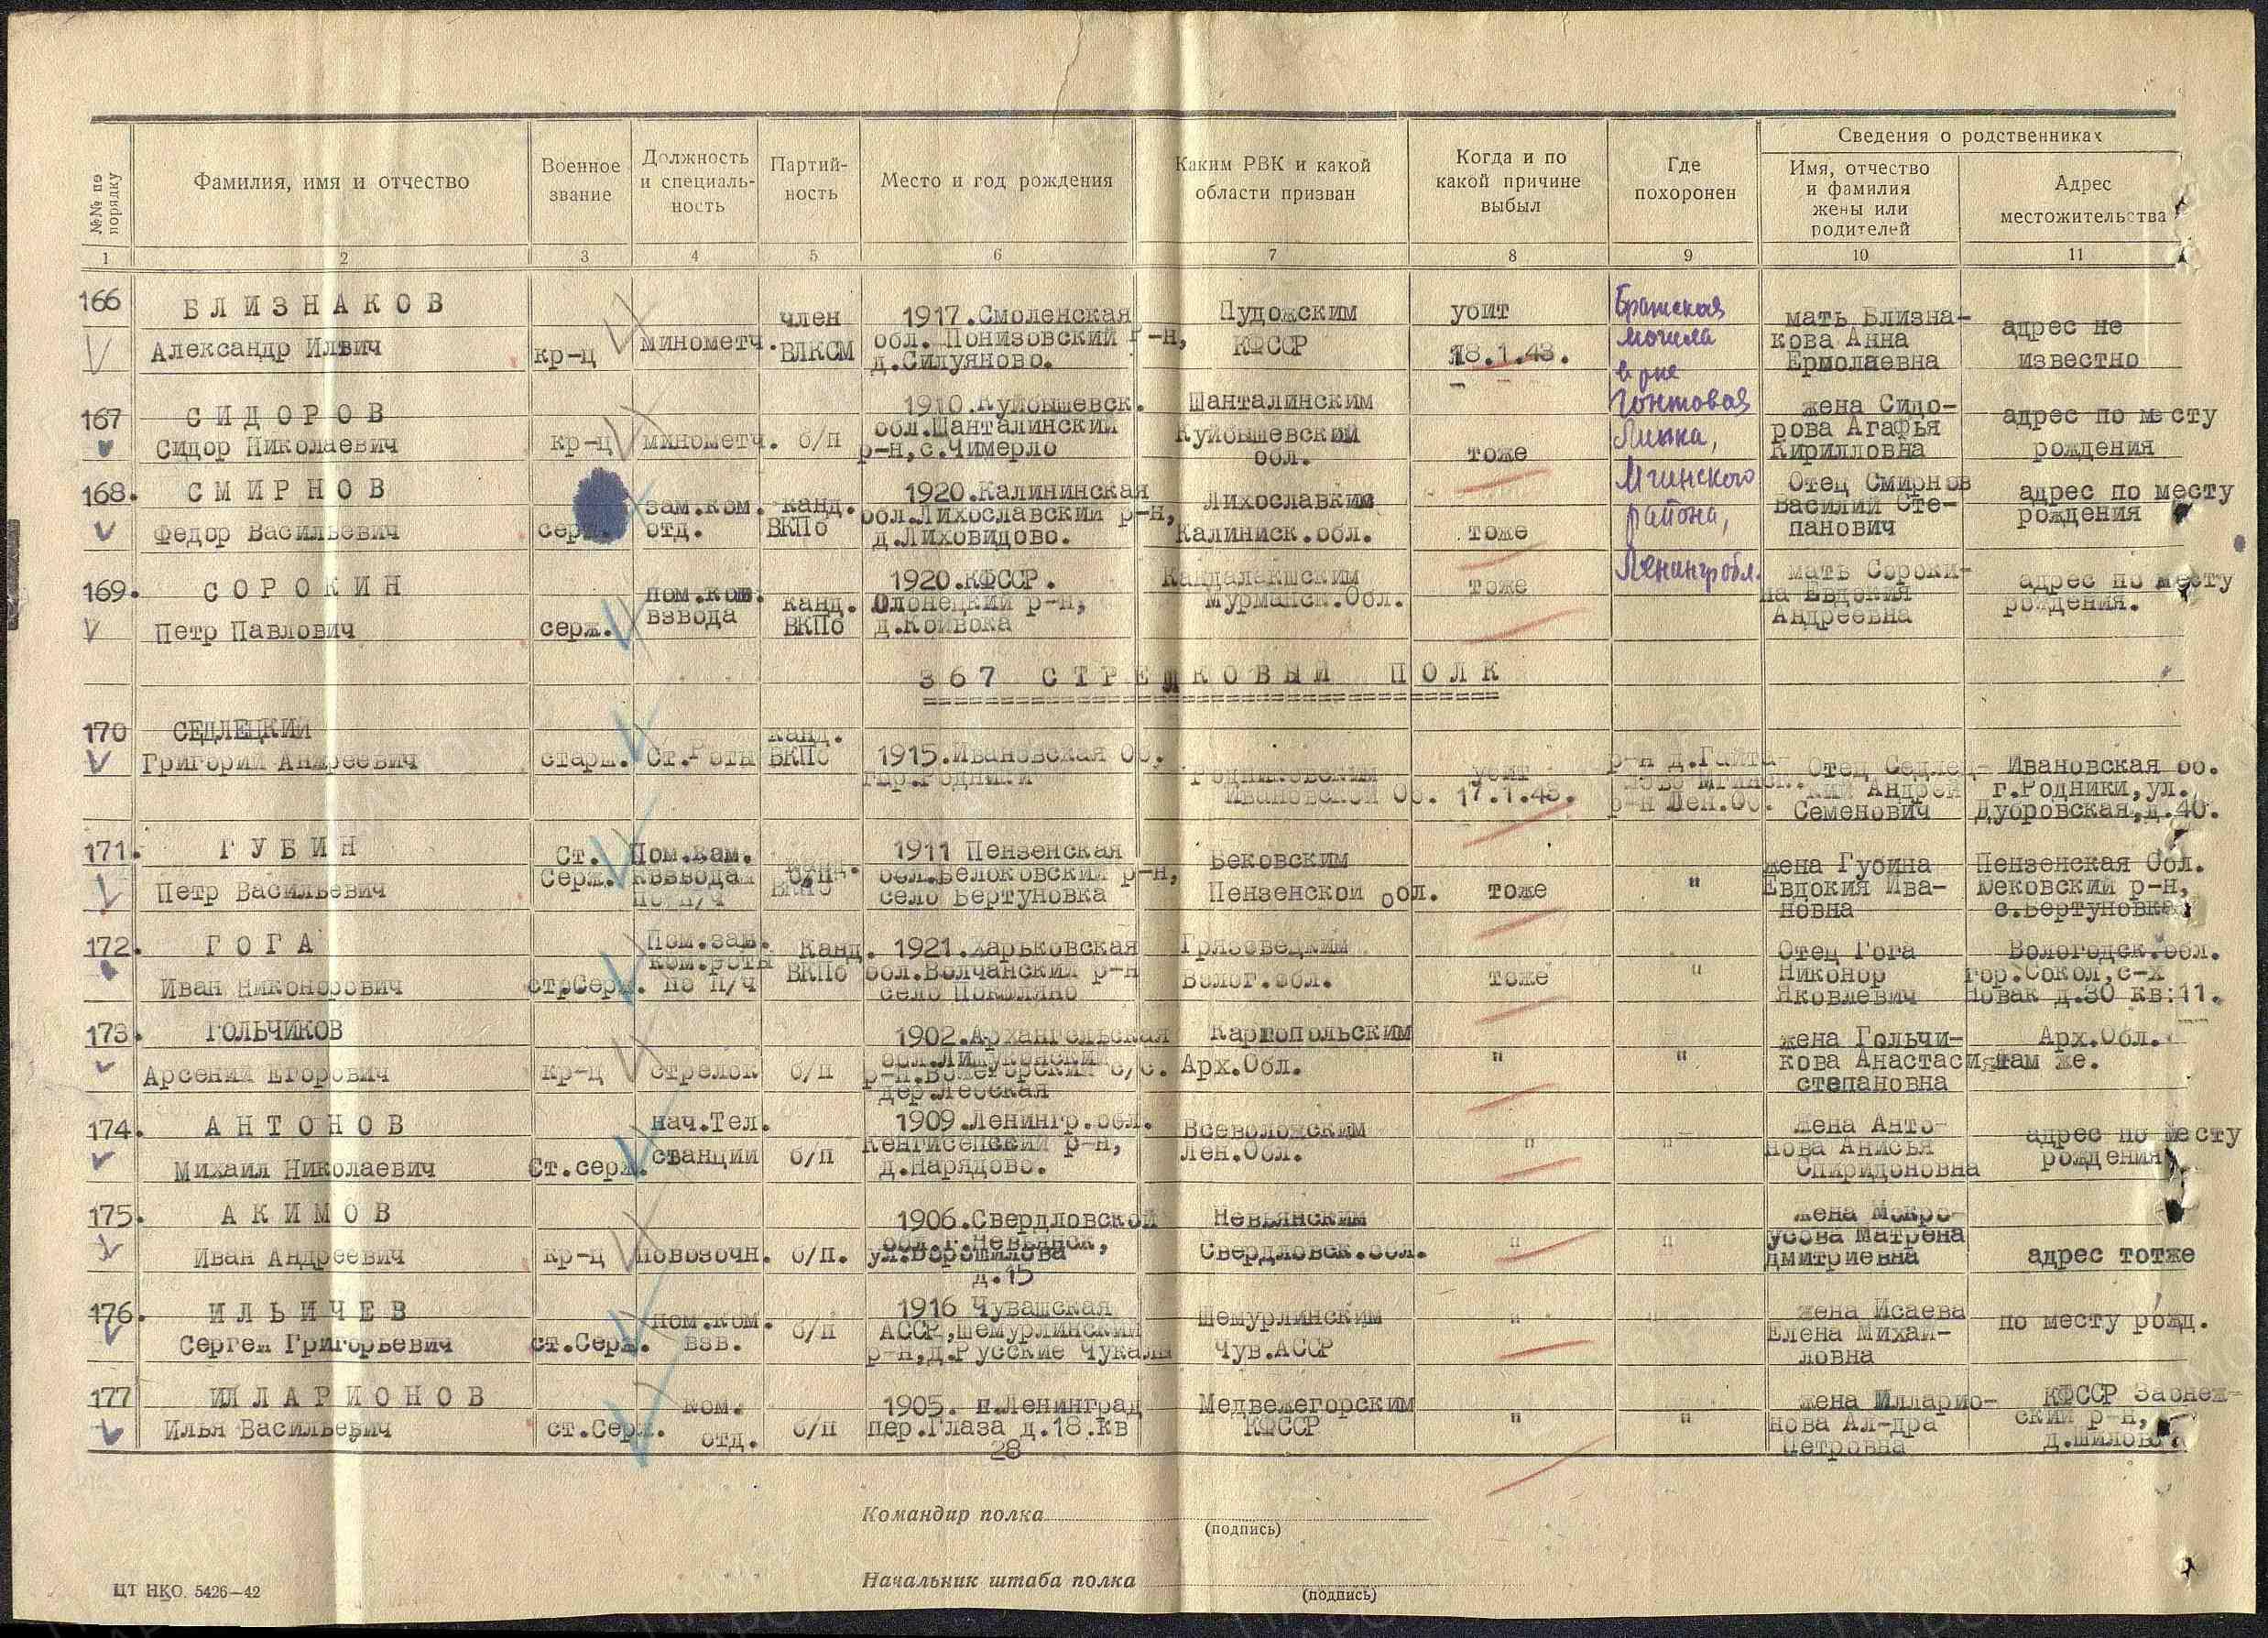 №№ по порядку
Фамилия, имя и отчество
Военное звание
Должность и специаль-ность
Партий-ность
Место и год рождения
Каким РВК и какой области призван
Когда и по какой причине выбыл
Где похоронен
Сведения о родственниках
Имя, отчество и фамилия жены или родителей
Адрес местожительства
1 2 3 4 5 6 7 8 9 10 11
166
БЛИЗНАКОВ
Александр Илвич
кр-ц
минометч.
член
ВЛКСМ
1917.Смоленская
обл. Понизовский р-н,
д.Силуяново.
Пудожским
КФССР
убит
18.1.43.
Братская
могила
в р-не
Гонтовая
Липка,
Мгинского
района,
Ленингр обл.
мать Близна-
кова Анна
Ермолаевна
адрес не
известно
167
СИДОРОВ
Сидор Николаевич
кр-ц
минометч.
б/п
1910.Куйбышевск.
обл.Шанталинский
р-н,с.Чимерло
Шанталинским
Куйбышевский
обл.
тоже
жена Сидо-
рова Агафья
Кирилловна
адрес по месту
рождения
168.
СМИРНОВ
Федор Васильевич
серж.
зам.ком.
отд.
канд.
ВКПб
1920.Калининская
обл.Лихославский р-н,
д.Лиховидово.
Лихославким
Калиниск.обл.
тоже
Отец Смирнов
Василий Сте-
панович
адрес по месту
рождения
169.
СОРОКИН
Петр Павлович
серж.
пом.ком.
взвода
канд.
ВКПб
1920.КФССР.
Олонецкий р-н,
д.Койвока
Кандалакшским
Мурманск.Обл.
тоже
мать Сороки-
на Евдокия
Андреевна
адрес по месту
рождения.
367 СТРЕЛКОВЫЙ ПОЛК
170
СЕДЛЕЦКИЙ
Григорий Андреевич
старш.
Ст.Роты
канд.
ВКПб
1915.Ивановская Об.
гор.Родники
Родниковским
Ивановской Об.
убит
17.1.43.
р-н д.Гайто-
лово Мгинск.
р-н Лен.Об.
Отец Седлец-
кий Андрей
Семенович
Ивановская об.
г.Родники,ул.
Дубровская,д.40.
171.
ГУБИН
Петр Васильевич
Ст.
Серж.
Пом.кам.
по п/ч
ВКПб
1911 Пензенская
обл.Белоковский р-н,
село Вертуновка
Бековским
Пензенской обл.
тоже
"
жена Губина
Евдокия Ива-
новна
Пензенская Обл.
Бековский р-н,
с.Вертуновка
172.
ГОГА
Иван Никонорович
стрСерж.
Пом.зам.
ком.роты
по п/ч
Канд.
ВКПб
1921.Харьковская
обл.Волчанский р-н
село Покаляно
Грязовецким
Волог.обл.
тоже
"
Отец Гога
Никонор
Яковлевич
Вологодск.обл.
гор.Сокол,с-х
Новак д.30 кв:11.
173.
ГОЛЬЧИКОВ
Арсений Егорович
кр-ц
стрелок
б/п
1902.Архангельская
Каргопольским
Арх.Обл.
"
"
жена Гольчи-
кова Анастасия
степановна
Арх.Обл.
там же.
174.
АНТОНОВ
Михаил Николаевич
Ст.серж.
нач.Тел.
станции
б/п
1909.Ленингр.обл.
Кенгисепский р-н,
д.Нарядово.
Всеволожским
Лен.Обл.
"
"
жена Анто-
нова Анисья
Спиридоновна
адрес по месту
рождения
175.
АКИМОВ
Иван Андреевич
кр-ц
повозочн.
б/п.
1906.Свердловской
обл.г.Невьянск,
ул.Ворошилова
д.15
Невьянским
Свердловск.обл.
"
"
жена Мокро-
усова Матрена
Дмитриевна
адрес тотже
176.
ИЛЬИЧЕВ
Сергей Григорьевич
ст.Серж.
пом.ком.
взв.
б/п
1916 Чувашская
АССР,Шемурлинский
р-н,д.Русские Чукалы
Шемурлинским
Чув.АССР
"
"
жена Исаева
Елена Михай-
ловна
по месту рожд.
177
ИЛЛАРИОНОВ
Илья Васильевич
ст.Серж.
ком.
отд.
б/п
1905. г.Ленинград
пер.Глаза д.18.Кв
28
Медвежегорским
КФССР
"
"
жена Илларио-
нова Ал-дра
Петровна
КФССР Заонеж-
ский р-н,
д.Шилово
Командир полка
(подпись)
Начальник штаба полка
(подпись)
ЦТ НКО. 5426—42